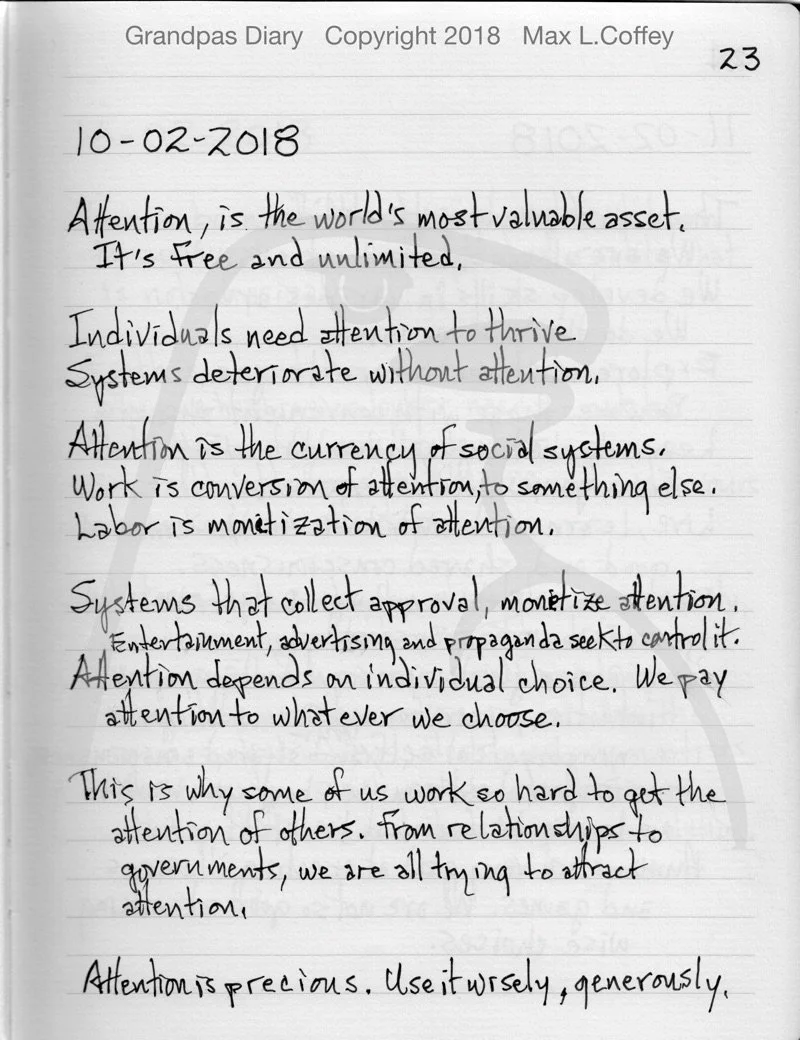 Grandpas Diary Copyright 2018 Max L.Coffey
23
10-02-2018
Attention, is the world's most valuable asset.
It's free and unlimited.
Individuals need attention to thrive
Systems deteriorate without attention.
Attention is the currency of social systems.
Work is conversion of attention, to something else.
Labor is monitization of attention.
Systems that collect approval, monetize attention.
Entertainment, advertising and propaganda seek to control it.
Attention depends on individual choice. We pay
attention to what ever we choose.
This is why some of us work so hard to get the
attention of others. From relationships to
governments, we are all trying to attract
attention.
Attention is precious. Use it wisely, generously.